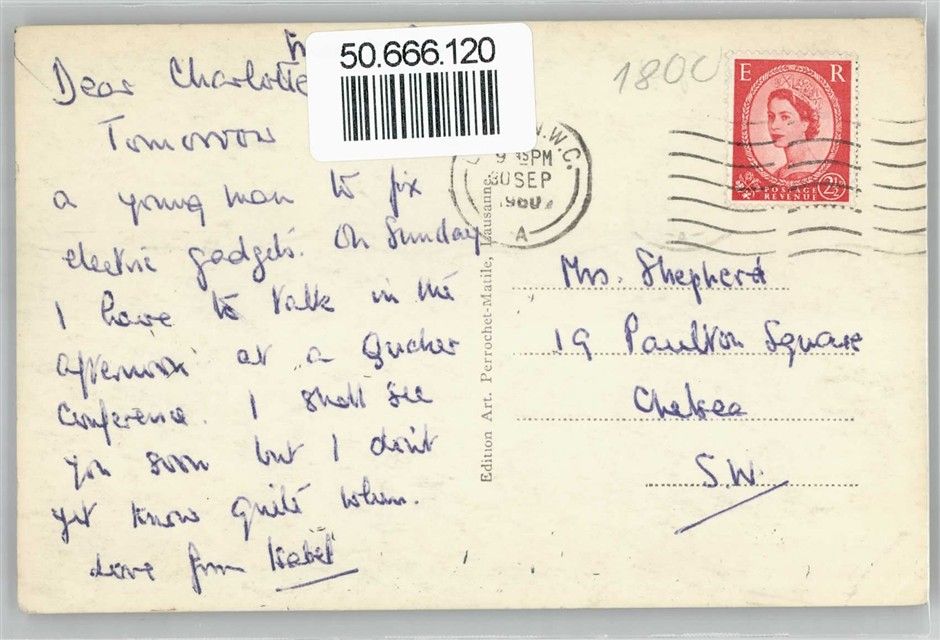 50.666.120
1800
Dear Charlotte
Tomorrow
a young man to fix
electric gadgets. On Sunday
I have to talk in the
afternoon at a Quaker
Conference. I shall see
you soon but I don't
yet know quite when.
Love from Isabel
W.C.
9 PM
30 SEP
1960
A
E R
POSTAGE
REVENUE
2½
Edition Art. Perrochet-Matile, Lausanne.
Mrs. Shepherd
19 Paulton Square
Chelsea
S.W.